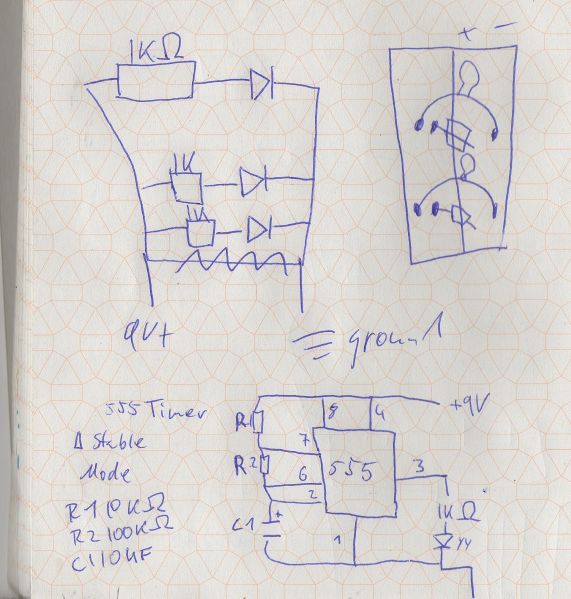 1KΩ
+ -
1K
1K
9V+
ground
555 Timer
AStable
Mode
R1 10KΩ
R2 100KΩ
C1 10µF
R1
R2
C1
+
8
4
+9V
7
6
2
555
3
1
1KΩ